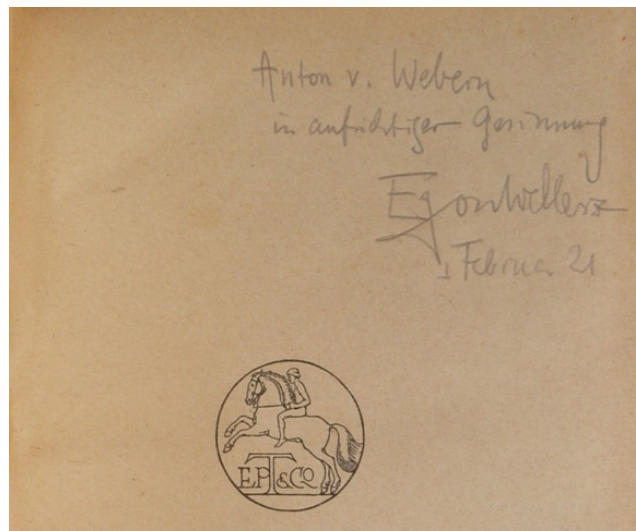 Anton v. Webern
in aufrichtiger Gesinnung
Egon Wellesz
1 Februar 21
E.P.T.&CO